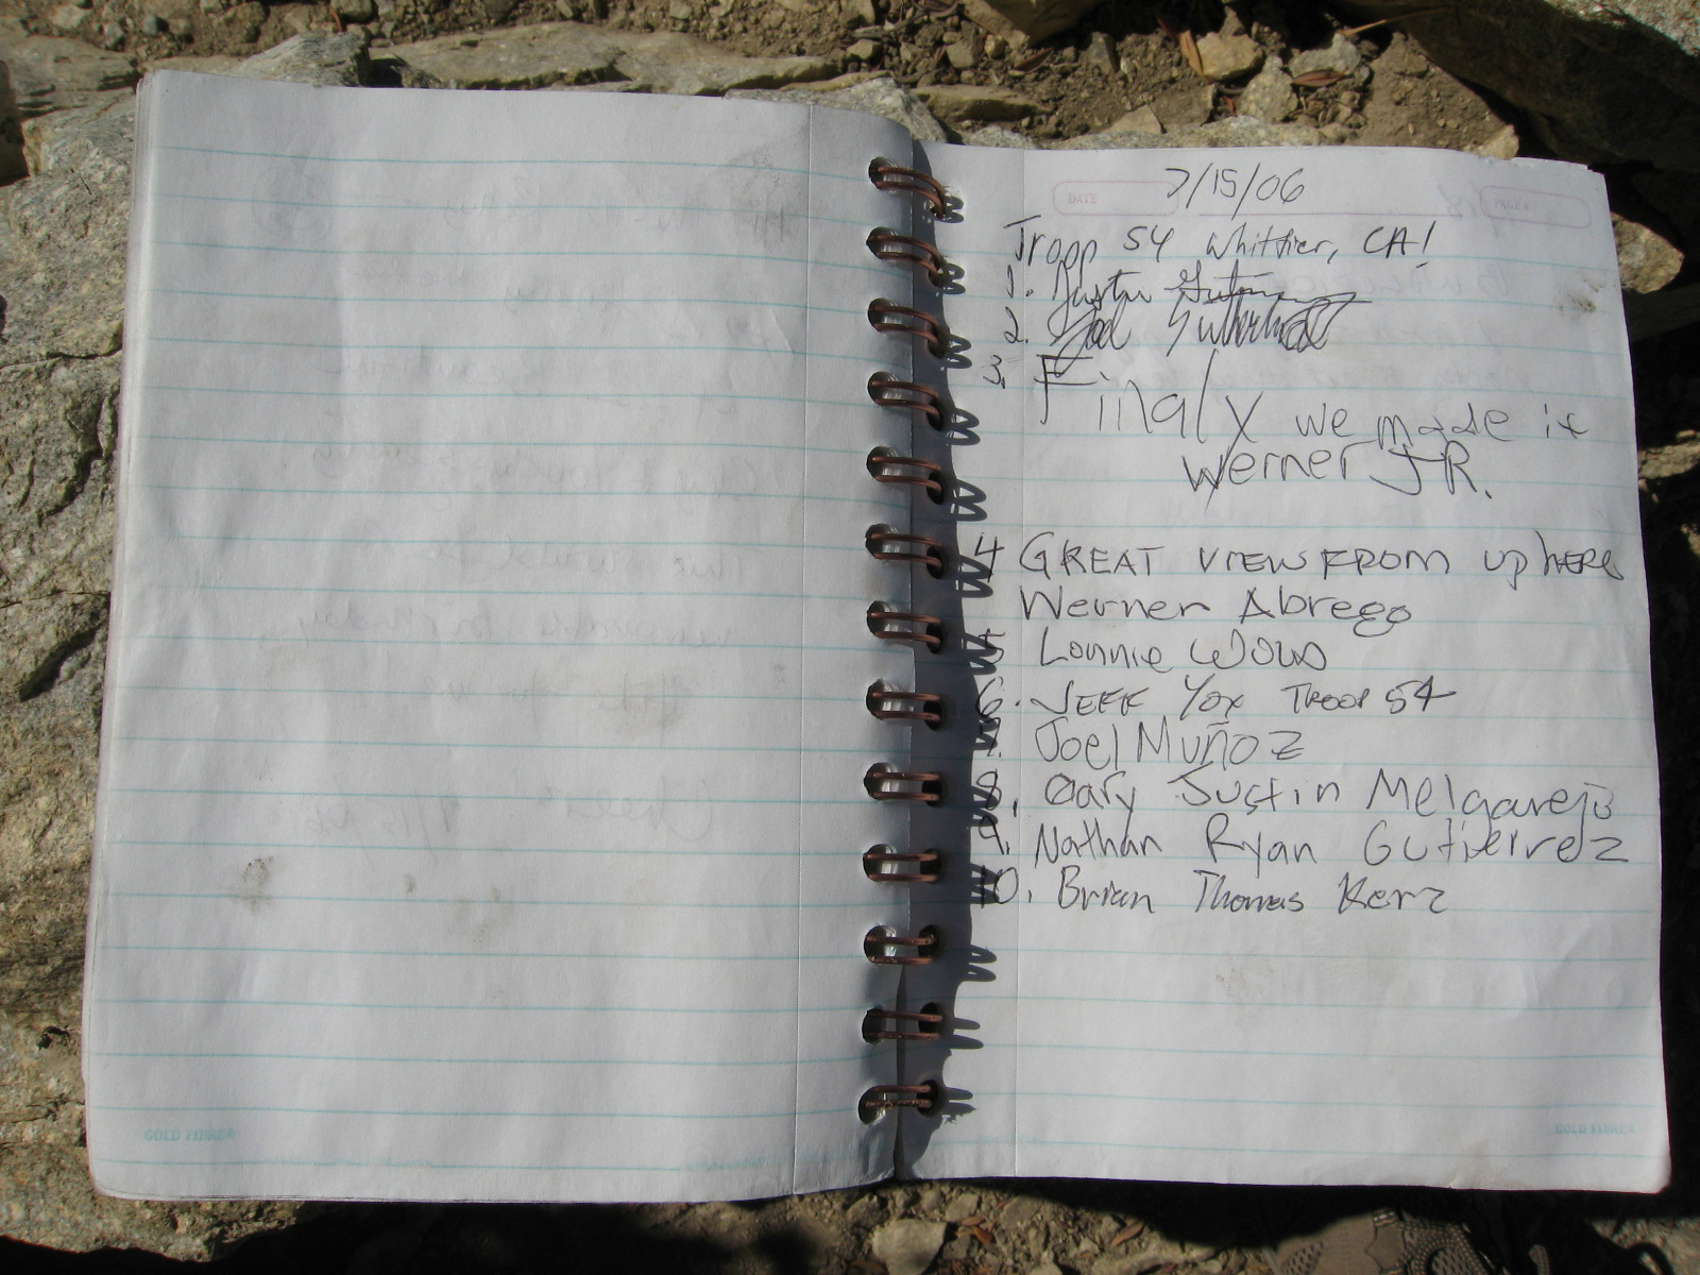 DATE
7/15/06
Troop 54 Whittier, CA!
1. Justin
2. Joel
3. Finaly we made it
Werner JR.
4 GREAT VIEW FROM up HERE
Werner Abrego
5 Lonnie
6. JEFF YOX TROOP 54
7. Joel Muñoz
8. Gary Justin Melgarejo
9. Nathan Ryan Gutierrez
10. Brian Thomas Kerz
GOLD FIBRE
GOLD FIBRE